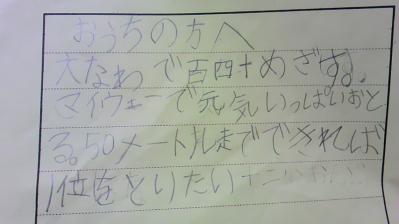 おうちの方へ
大なわで百四十めざす。
マイウェーで元気いっぱいおど
る。50メートル走でできれば
1位をとりたい